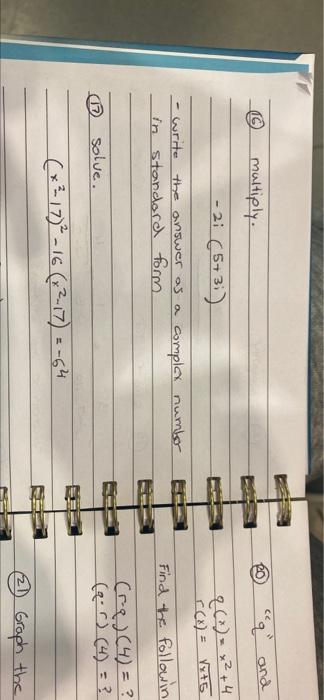 (16) multiply.
-2i (5+3i)
- write the answer as a complex number
in standard form
(17) solve.
(x²-17)² -16 (x²-17) = -64
(20) "q" and
q(x) = x² + 4
r(x) = √x+5
Find the followin
(r∘q) (4) = ?
(q∘r) (4) = ?
(21) Graph the